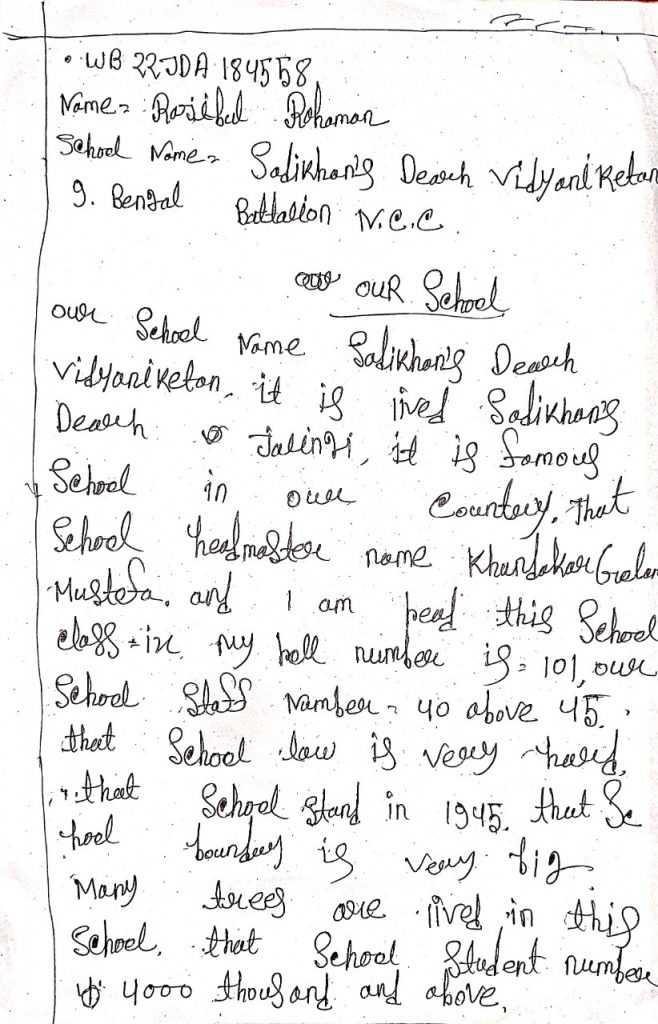 • WB 22JDA 184558
Name = Rajibul Rohaman
School Name = Sadikhan's Dearh Vidyaniketan
9. Bengal Battalion N.C.C
OUR School
our School Name Sadikhan's Dearh
Vidyaniketan. it is lived Sadikhan's
Dearh Jalingi, it is famous
School in our Country. That
School headmaster name Khandakar Golam
Mustofa. and I am read this School
class = ix. my roll number is = 101, our
School Staff Number = 40 above 45.
that School law is very hard.
that School stand in 1945. that Sc
hool boundary is very big
Many trees are lived in this
School. that School Student number
4000 thousand and above.